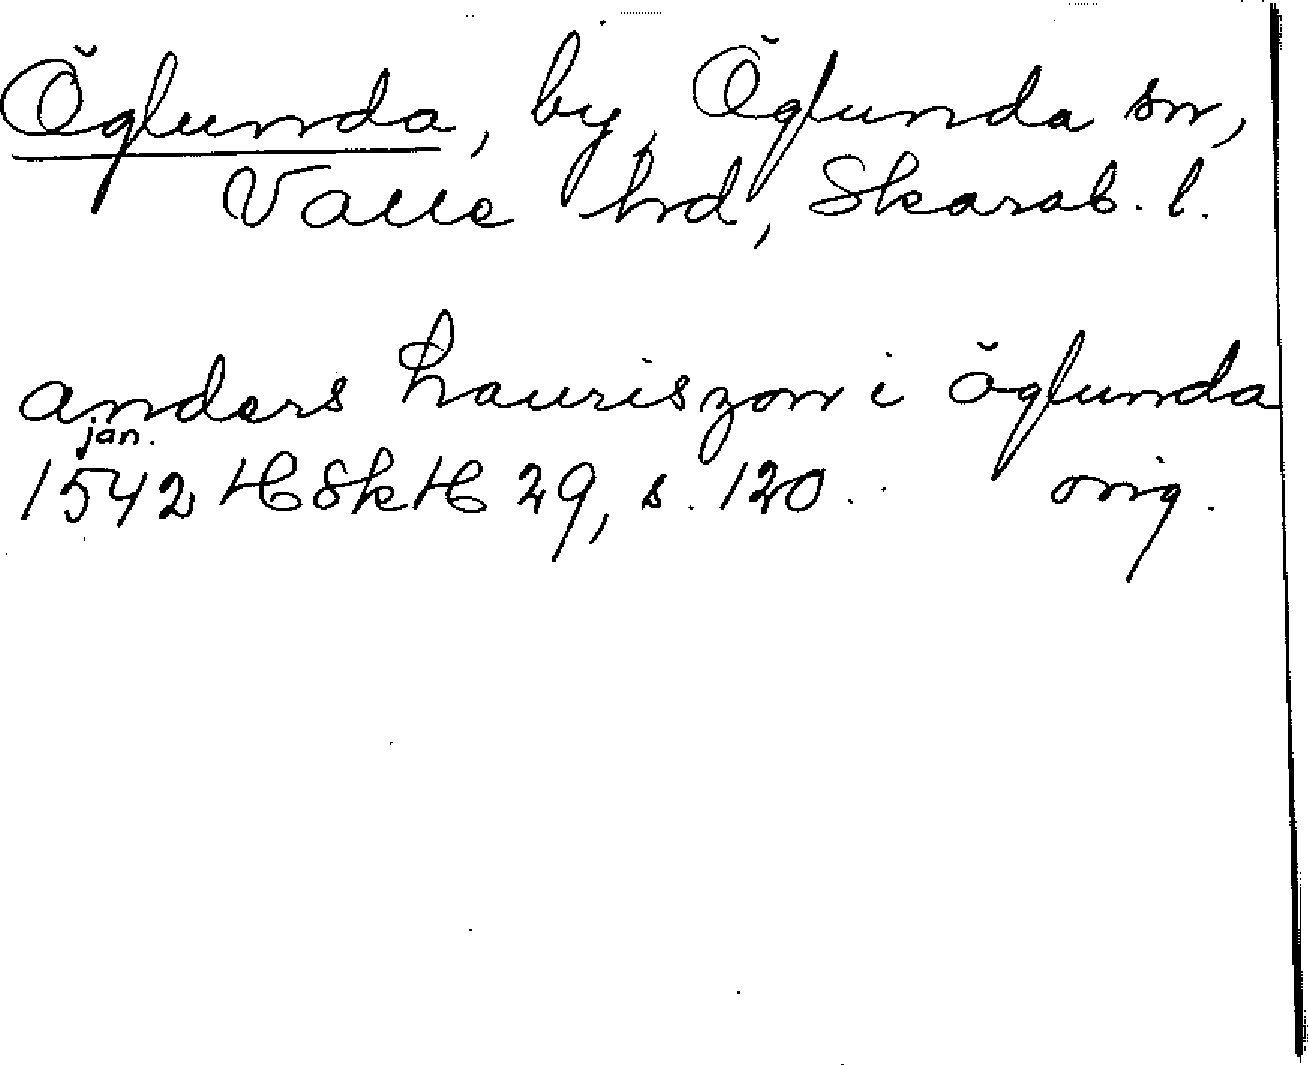 Öglunda, by, Öglunda sn,
Valle hrd, Skarab. l.
anders Lauriszon i öglunda
jan.
1542 HSkH 29, s. 120. orig.